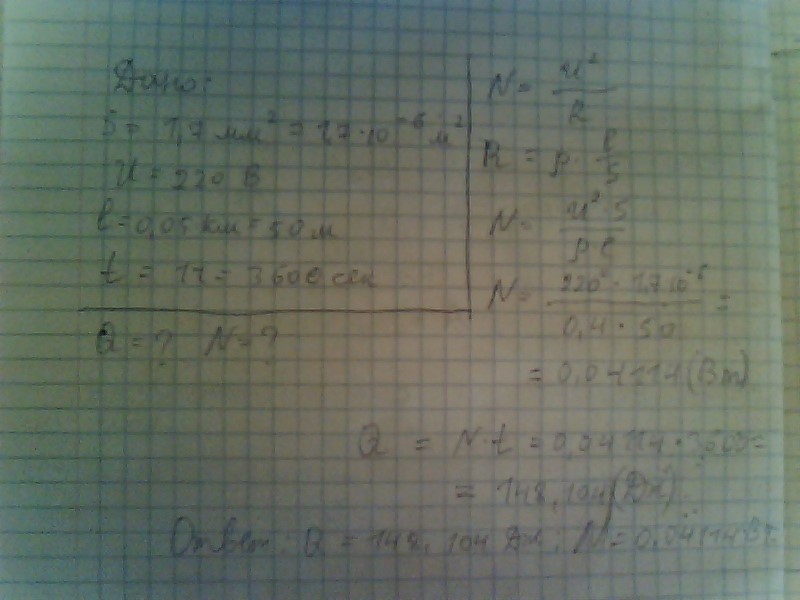 Дано:
S = 1,7 мм² = 1,7·10⁻⁶ м²
U = 220 В
l = 0,05 км = 50 м
t = 1ч = 3600 сек
Q = ? N = ?
N = U²/R
R = ρ · l/S
N = U²·S/ρl
N = 220²·1,7·10⁻⁶/0,4·50 =
= 0,04114 (Вт)
Q = N·t = 0,04114·3600 =
= 148,104 (Дж)
Ответ: Q = 148,104 Дж; N = 0,04114 Вт.